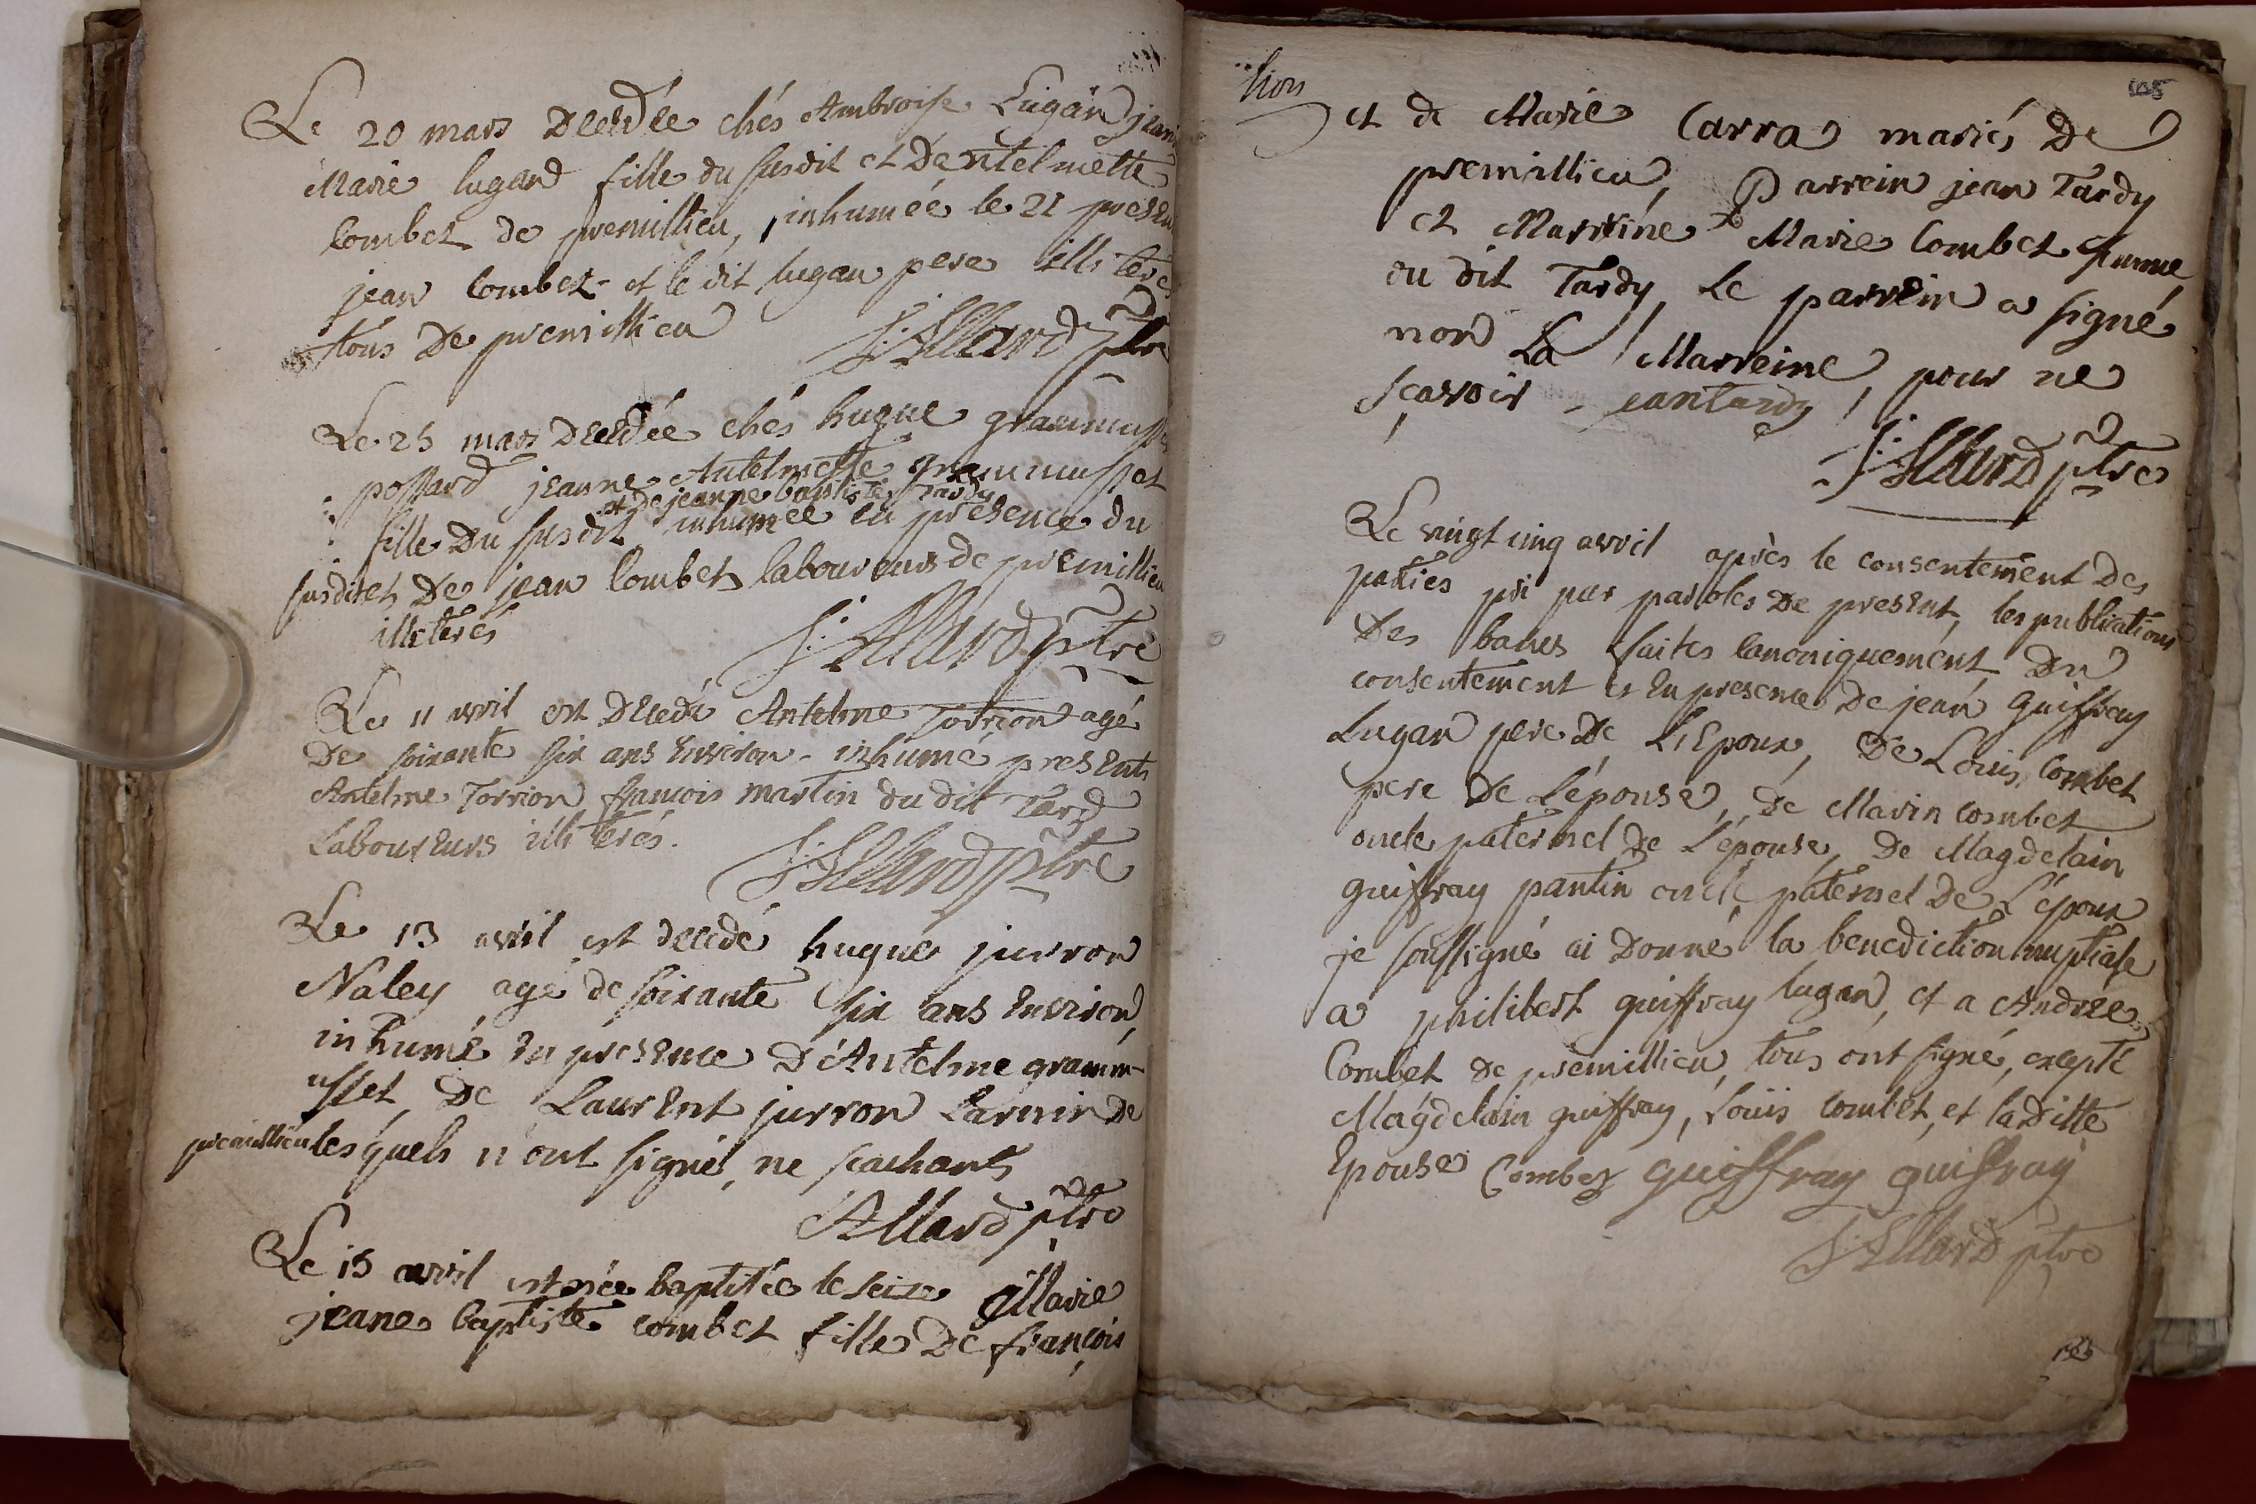 Le 20 mars Decedée chés Ambroise Lugan jeanne
Marie lugand fille du susdit et Dentelmette
Combet de premillieu, inhumée le 21 present
jean Combet et le dit lugan pere illiterés
tous De premillieu J: Allard ptre
Le 25 mars Decedée chés hugue grammusset
possard jeanne Antelmette grammusset
et de jeanne baptiste Tardy
fille Du susdit inhumée en presence du
susdit et De jean Combet laboureurs de premillieu
illeterés J: Allard ptre
Le 11 avril est Decedé Antelme Torrion agé
De soixante six ans Environ - inhumé, presents
Antelme Torrion francois martin du dit Tard
Laboureurs illiterés. J: Allard ptre
Le 13 avril est decedé hugue jurron
Naley agé de soixante six ans Environ,
inhumé En presence D'Antelme gramm-
usset, De Laurent jurron Larmin De
premillieu les quels n'ont signé, ne scachants
Allard ptre
Le 15 avril est née baptisée le seize Marie
jeane baptiste combet fille De françois
105
et de Marie Carra mariés De
premillieu, Parrein jean Tardy
et Marreine Marie Combet femme
du dit Tardy, Le parrein a signé
non La Marreine, pour ne
sçavoir - jean tardy
J: Allard ptre
Le vingt cinq avril après le consentement Des
parties pri par paroles De present, les publications
Des bancs faites Canoniquement, Du
consentement et En presence De jean Guiffray
Lugan pere De L'Epoux, De Louis Combet
pere De L'épouse, de Marin combet
oncle paternel De L'épouse, De Magdelain
guiffray pantin oncle paternel De L'époux
je soussigné ai Donné la benediction nuptiale
a philibert guiffray lugan, et a Andrée
Combet de premillieu, tous ont signé, excepté
Magdelain guiffray, Louis Combet, et la Ditte
Epouse Combez guiffray guifray
J: Allard ptre